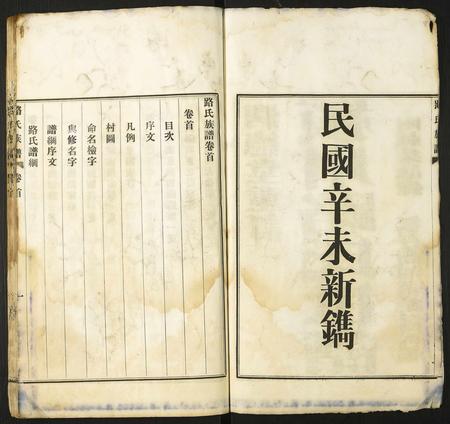 路氏族譜
民國辛未新鐫
路氏族譜卷首
卷首
目次
序文
凡例
村圖
命名檢字
與修名字
譜綱序文
路氏譜綱
路氏族譜
卷首
一